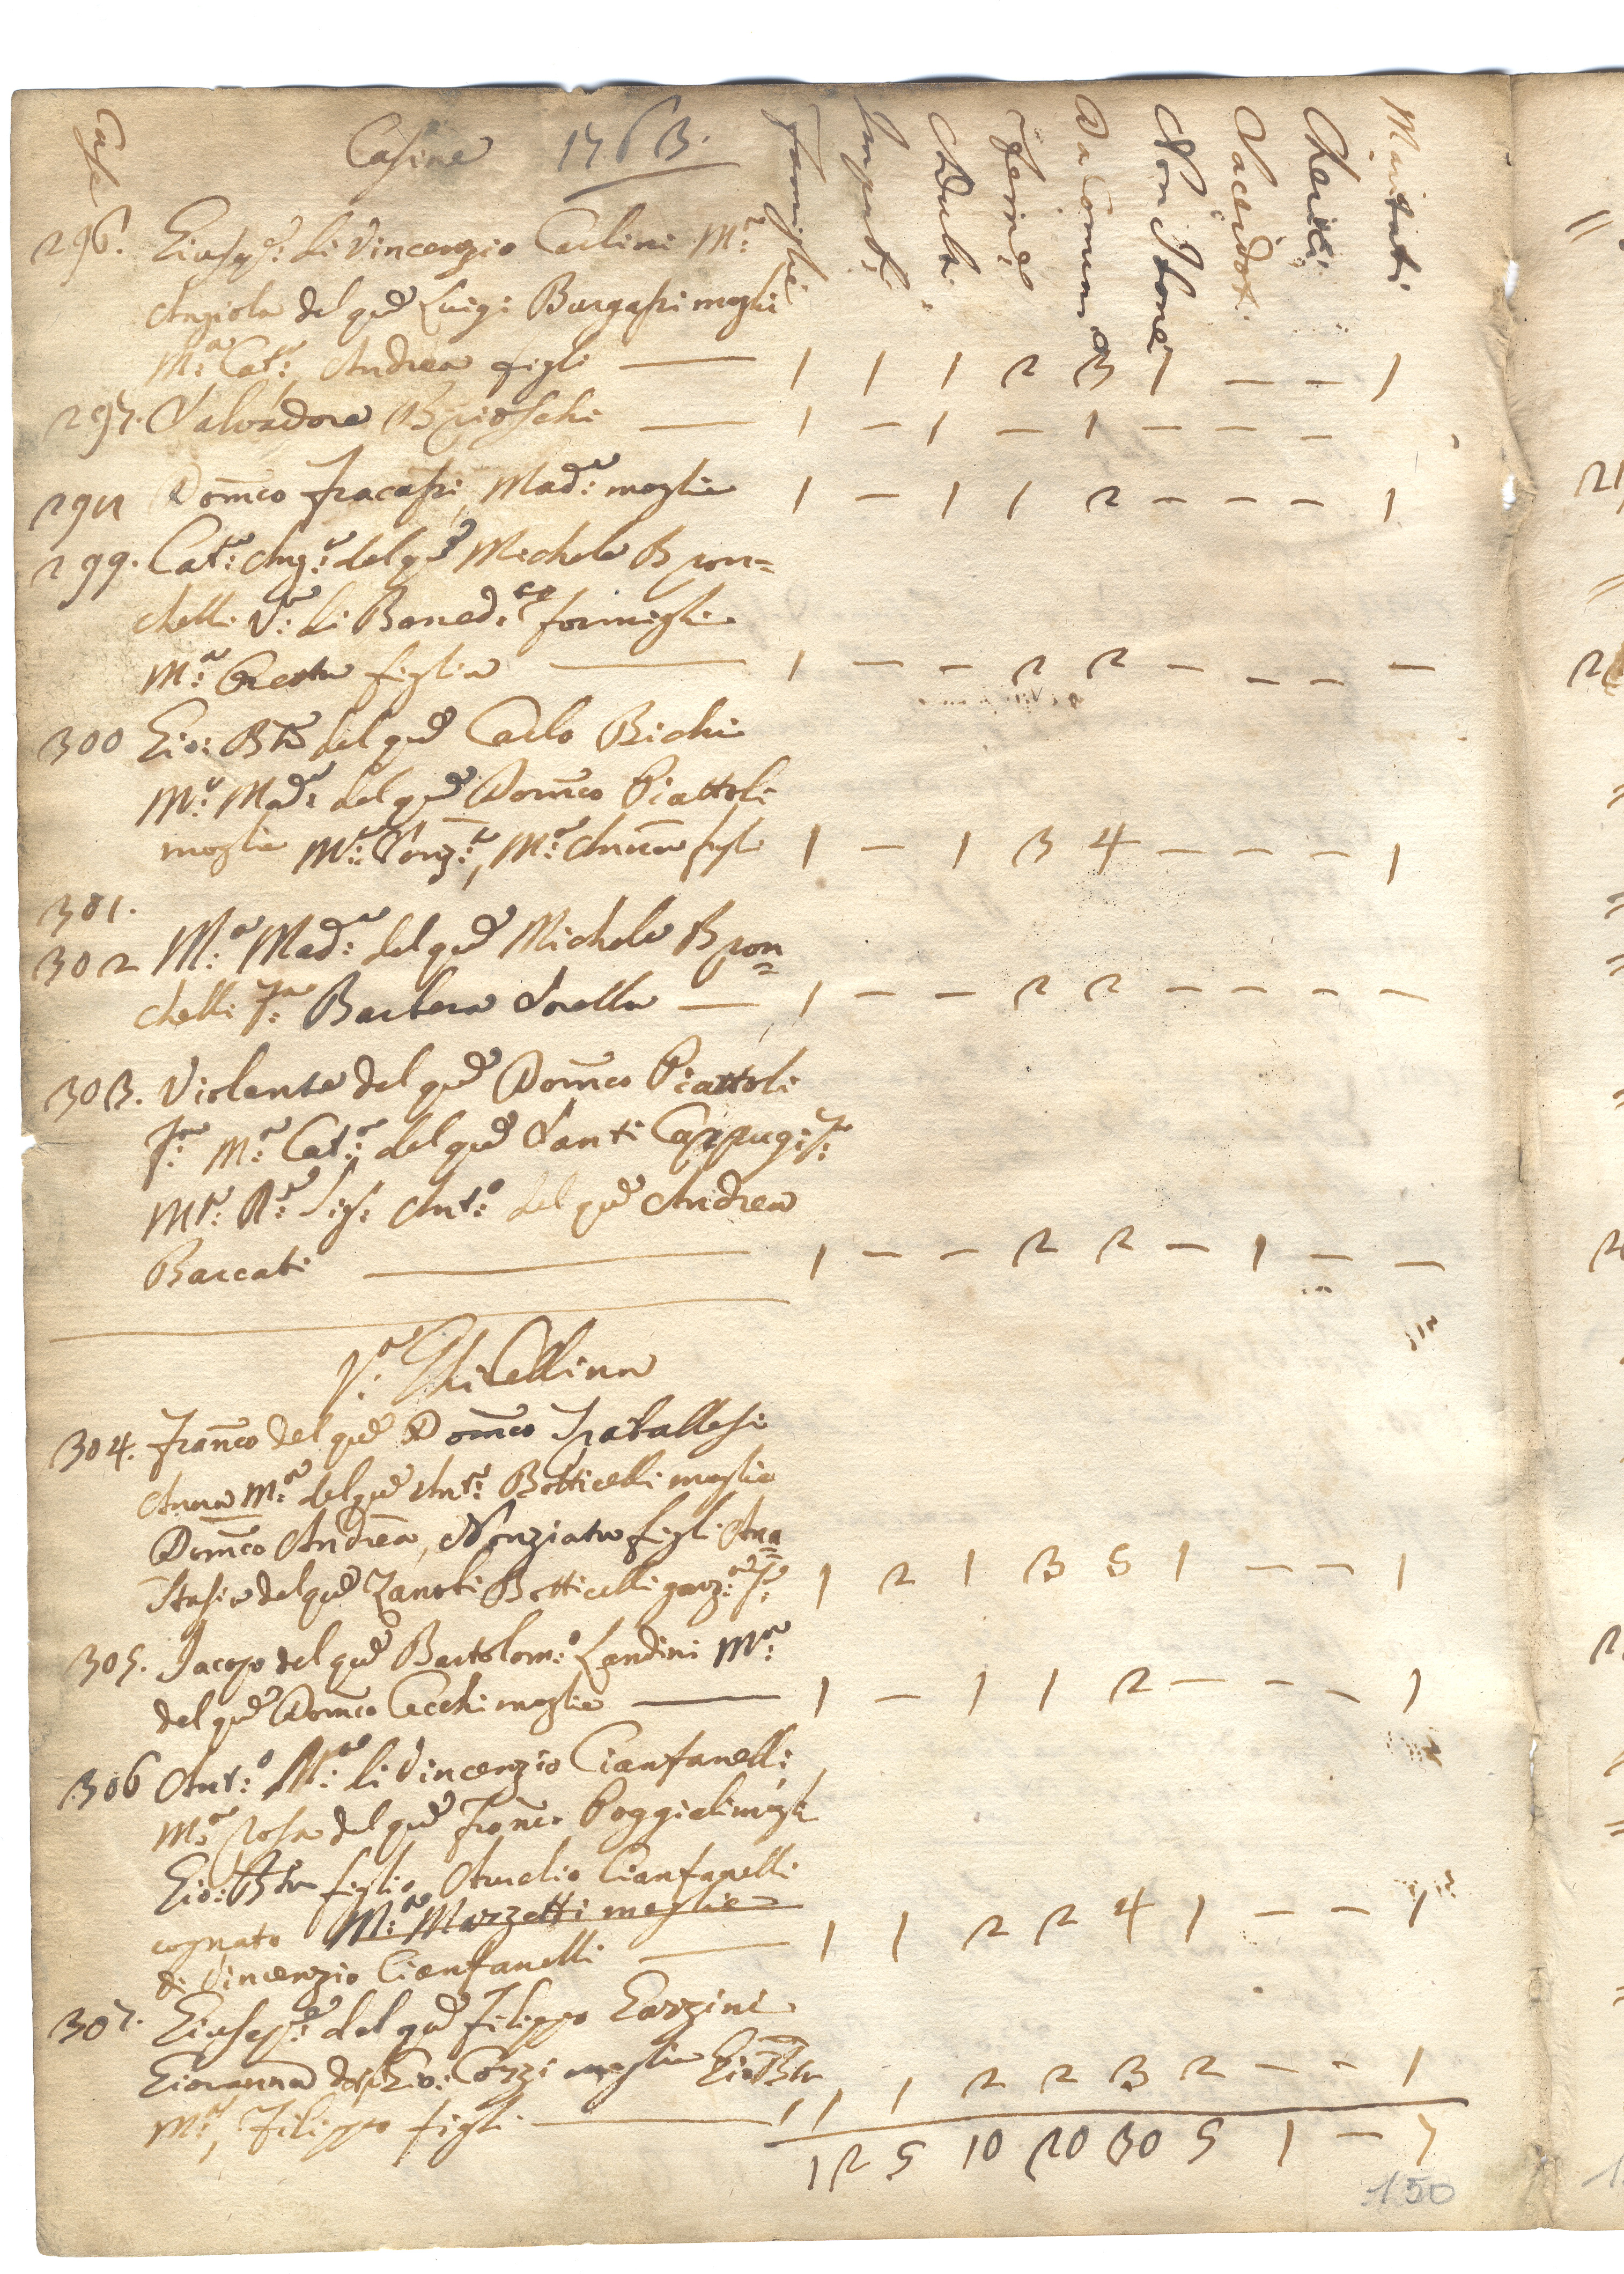 Case Casine 1763. Famiglie Imput: Adulti Femine Da Comunio Non Idonei Sacerdoti Cherici Maritati
296. Giusep:e di Vincenzio Carlini M:a
Angiola del qu Luigi Burgassi mogli
M:a Cat:a, Andrea figli — 1 1 1 2 3 1 — — 1
297. Salvadore Brioschi — 1 — 1 — 1 — — —
298 Domco Fracassi, Mad:a moglie 1 — 1 1 2 — — — 1
299. Cat:a Ang:a del qu Michele Bron=
chelli V:a di Bened:to formigli
M:a Creola figlia — 1 — — 2 2 — — — —
300 Gio: Bta del qu Carlo Bichi
M:a Mad:a del qu Domco Piattoli
moglie M:a Conz:a, M:a Anna figli 1 — 1 3 4 — — — 1
301.
302 M:a Mad:a del qu Michele Bron=
chelli F:a Barbera Sorella — 1 — — 2 2 — — — —
303. Violante del qu Domco Piattoli
F:a M:a Cat:a del qu Santi Cappugi F:a
M:to R:o Sig: Ant:o del qu Andrea
Barcati — 1 — — 2 2 — 1 — —
V:a Ghibellina
304. Franco del qu Domco Traballesi
Anna M:a del qu Ant:o Botticelli moglie
Domco Andrea, Nonziata figli Ana=
stasia del qu Zanobi Botticelli garz:a F:a 1 2 1 3 5 1 — — 1
305. Jacopo del qu Bartolom:o Landini M:a
del qu Domco Cecchi moglie — 1 — 1 1 2 — — — 1
306 Ant:o M:a di Vincenzio Cianfanelli
M:a Rosa del qu Franco Poggiali mogli
Gio: Bta figlio Aurelio Cianfanelli
cognato M:a Marzetti moglie
di Vincenzio Cianfanelli — 1 1 2 2 4 1 — — 1
307. Giusep:e del qu Filippo Garzini
Giovanna del qu Gio: Cozzi moglie Gio Bta
M:a, Filippo figli — 1 1 2 2 3 2 — — 1
12 5 10 20 30 5 1 — 7
150